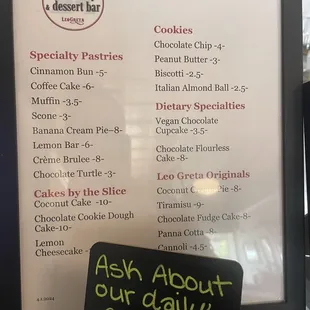 & dessert bar
LEOGRETA
Specialty Pastries
Cinnamon Bun -5-
Coffee Cake -6-
Muffin -3.5-
Scone -3-
Banana Cream Pie-8-
Lemon Bar -6-
Crème Brulee -8-
Chocolate Turtle -3-
Cakes by the Slice
Coconut Cake -10-
Chocolate Cookie Dough
Cake-10-
Lemon
Cheesecake
Cookies
Chocolate Chip -4-
Peanut Butter -3-
Biscotti -2.5-
Italian Almond Ball -2.5-
Dietary Specialties
Vegan Chocolate
Cupcake -3.5-
Chocolate Flourless
Cake -8-
Leo Greta Originals
Coconut Pie -8-
Tiramisu -9-
Chocolate Fudge Cake-8-
Panna Cotta -8-
Cannoli -4.5-
Ask About
our daily